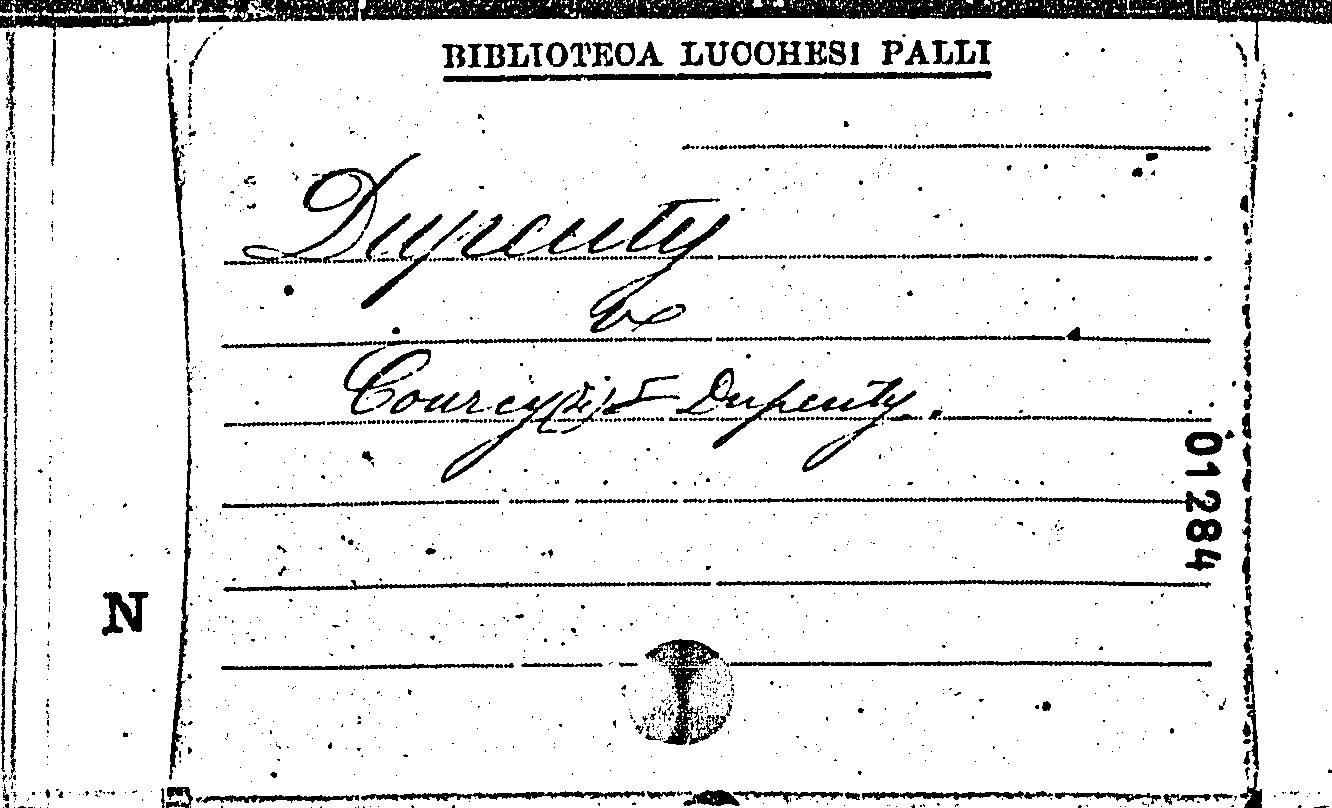 BIBLIOTECA LUCCHESI PALLI
Dupeuty
Courcy (de) et Dupeuty.
01284
N